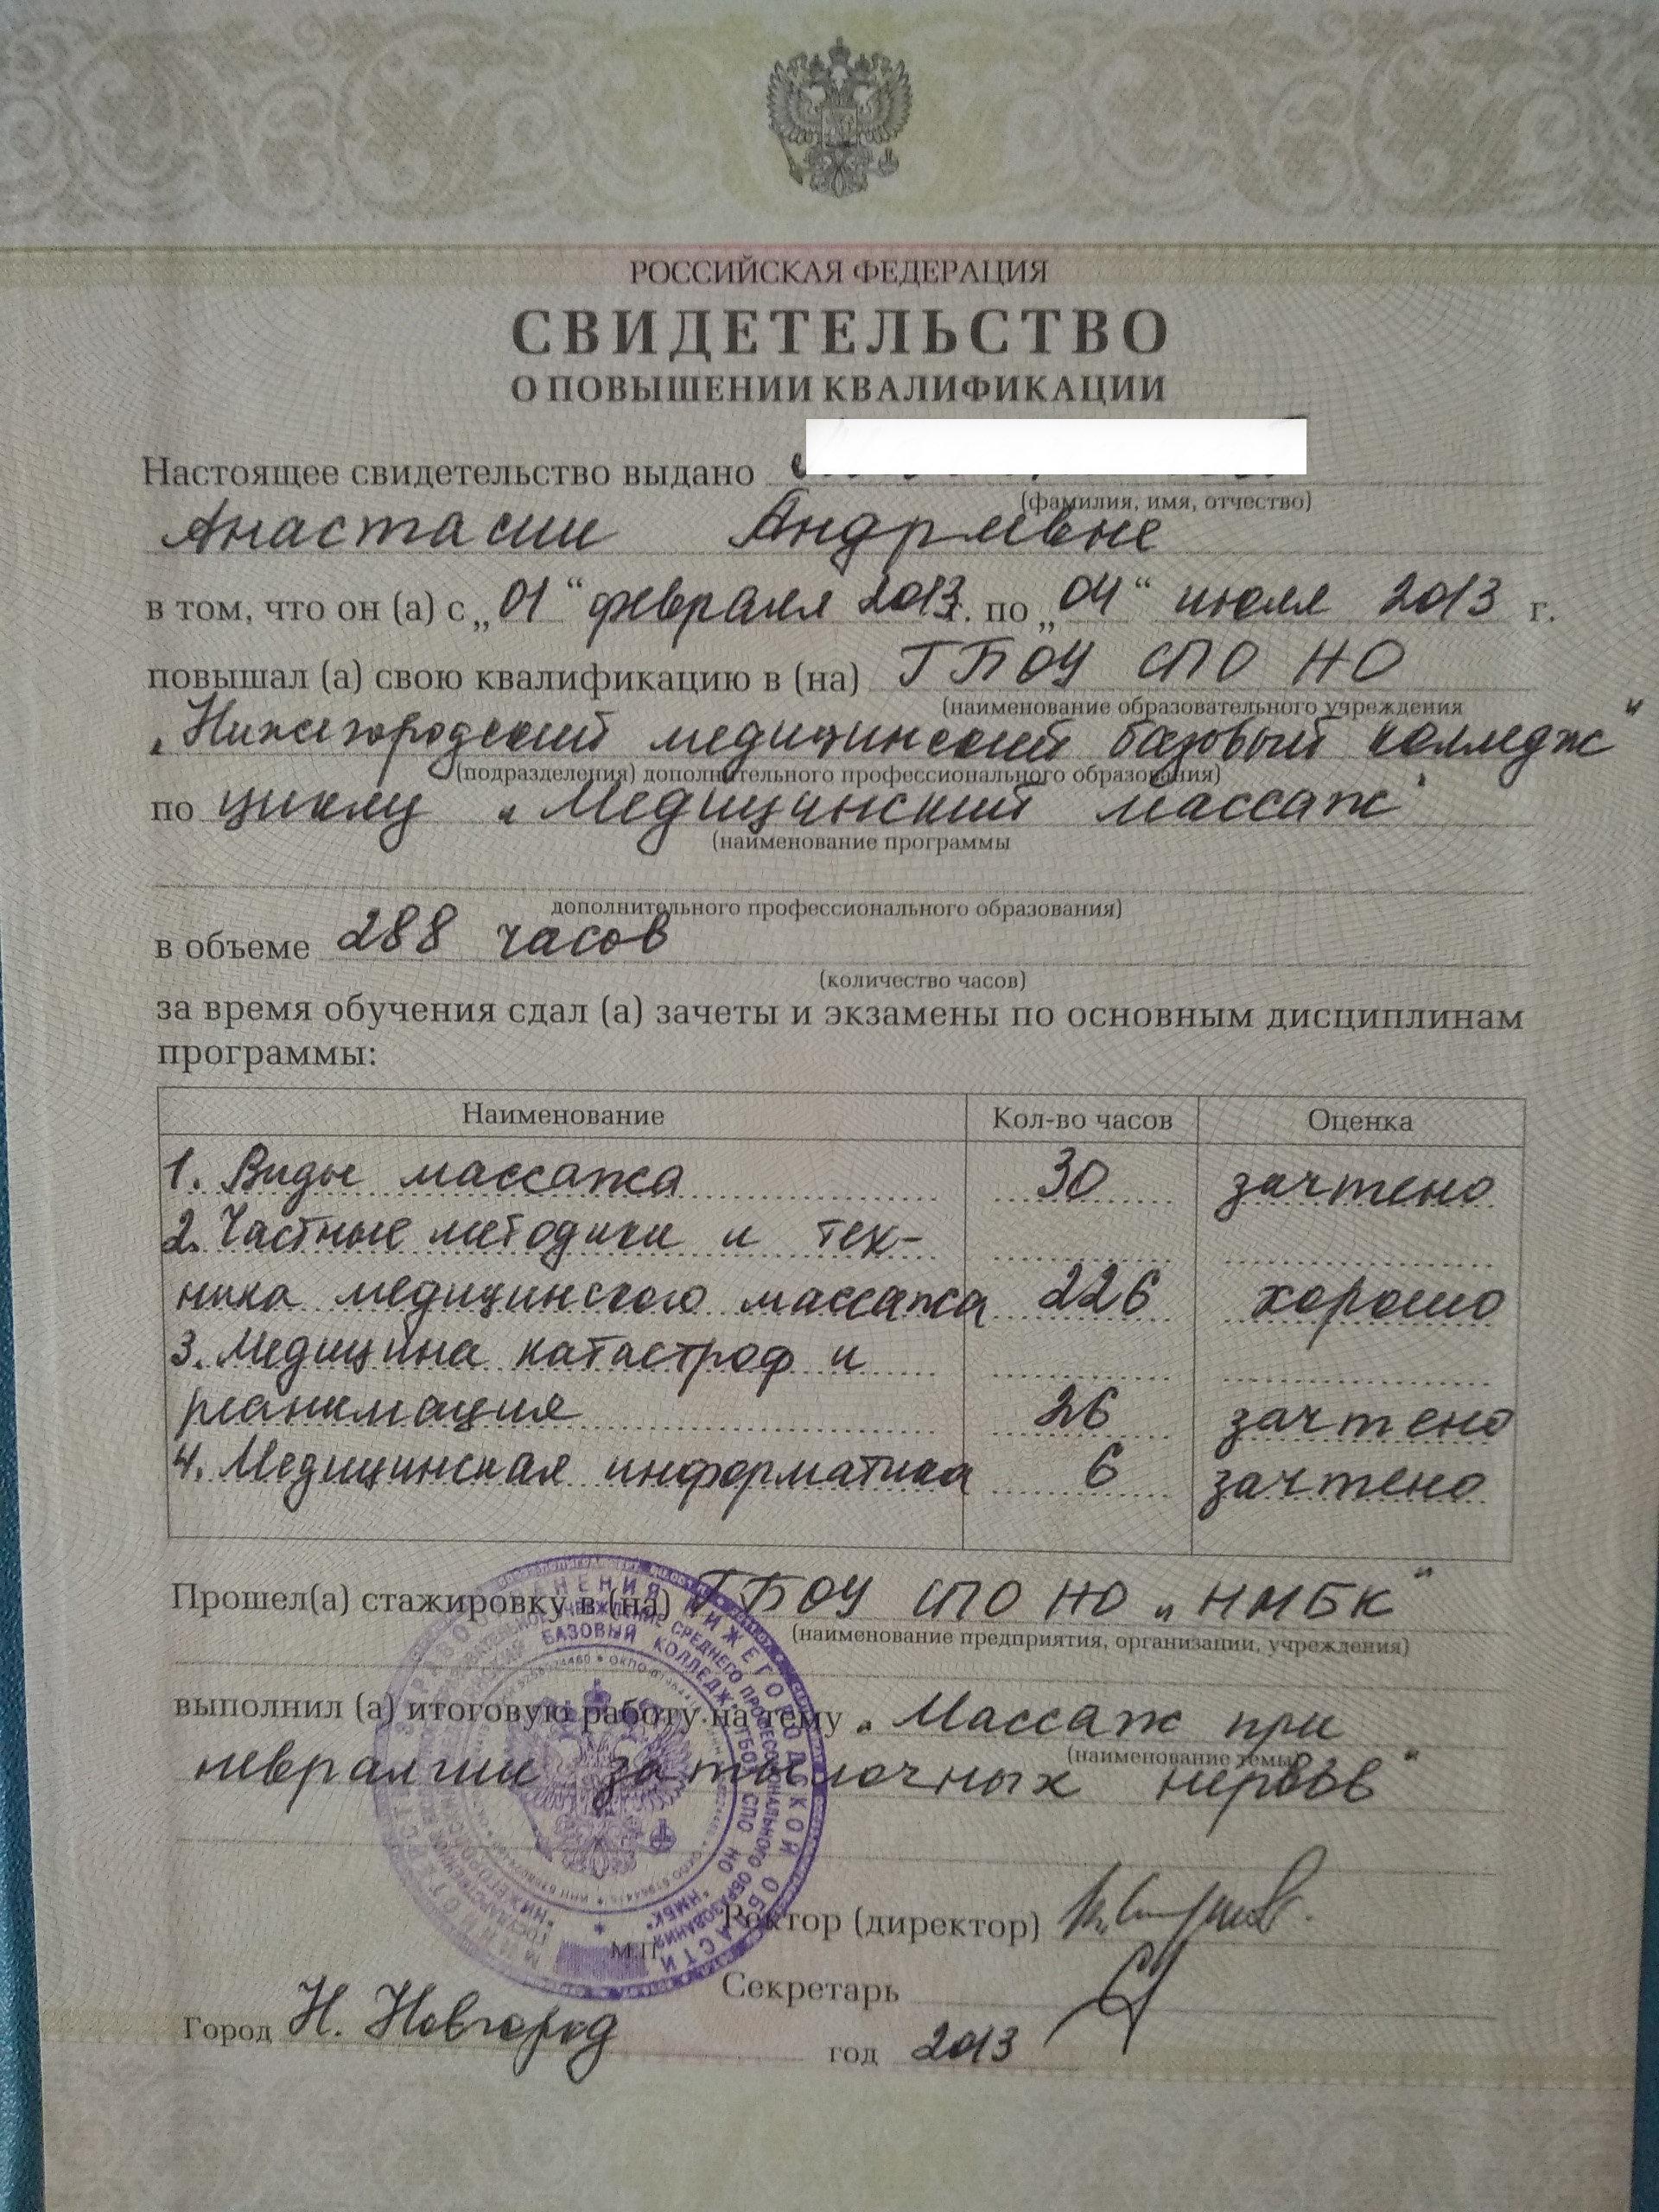 РОССИЙСКАЯ ФЕДЕРАЦИЯ
СВИДЕТЕЛЬСТВО
О ПОВЫШЕНИИ КВАЛИФИКАЦИИ
Настоящее свидетельство выдано
(фамилия, имя, отчество)
Анастасии Андреевне
в том, что он (а) с „01“ февраля 2013 г. по „04“ июля 2013 г.
повышал (а) свою квалификацию в (на) ГБОУ СПО НО
(наименование образовательного учреждения
„Нижегородский медицинский базовый колледж“
(подразделения) дополнительного профессионального образования)
по циклу „Медицинский массаж“
(наименование программы
дополнительного профессионального образования)
в объеме 288 часов
(количество часов)
за время обучения сдал (а) зачеты и экзамены по основным дисциплинам
программы:
Наименование Кол-во часов Оценка
1. Виды массажа 30 зачтено
2. Частные методики и тех-
ника медицинского массажа 226 хорошо
3. Медицина катастроф и
реанимация 26 зачтено
4. Медицинская информатика 6 зачтено
Прошел(а) стажировку в (на) ГБОУ СПО НО „НМБК“
(наименование предприятия, организации, учреждения)
выполнил (а) итоговую работу на тему „Массаж при
(наименование темы)
невралгии затылочных нервов“
Ректор (директор)
М.П.
Секретарь
Город Н. Новгород год 2013